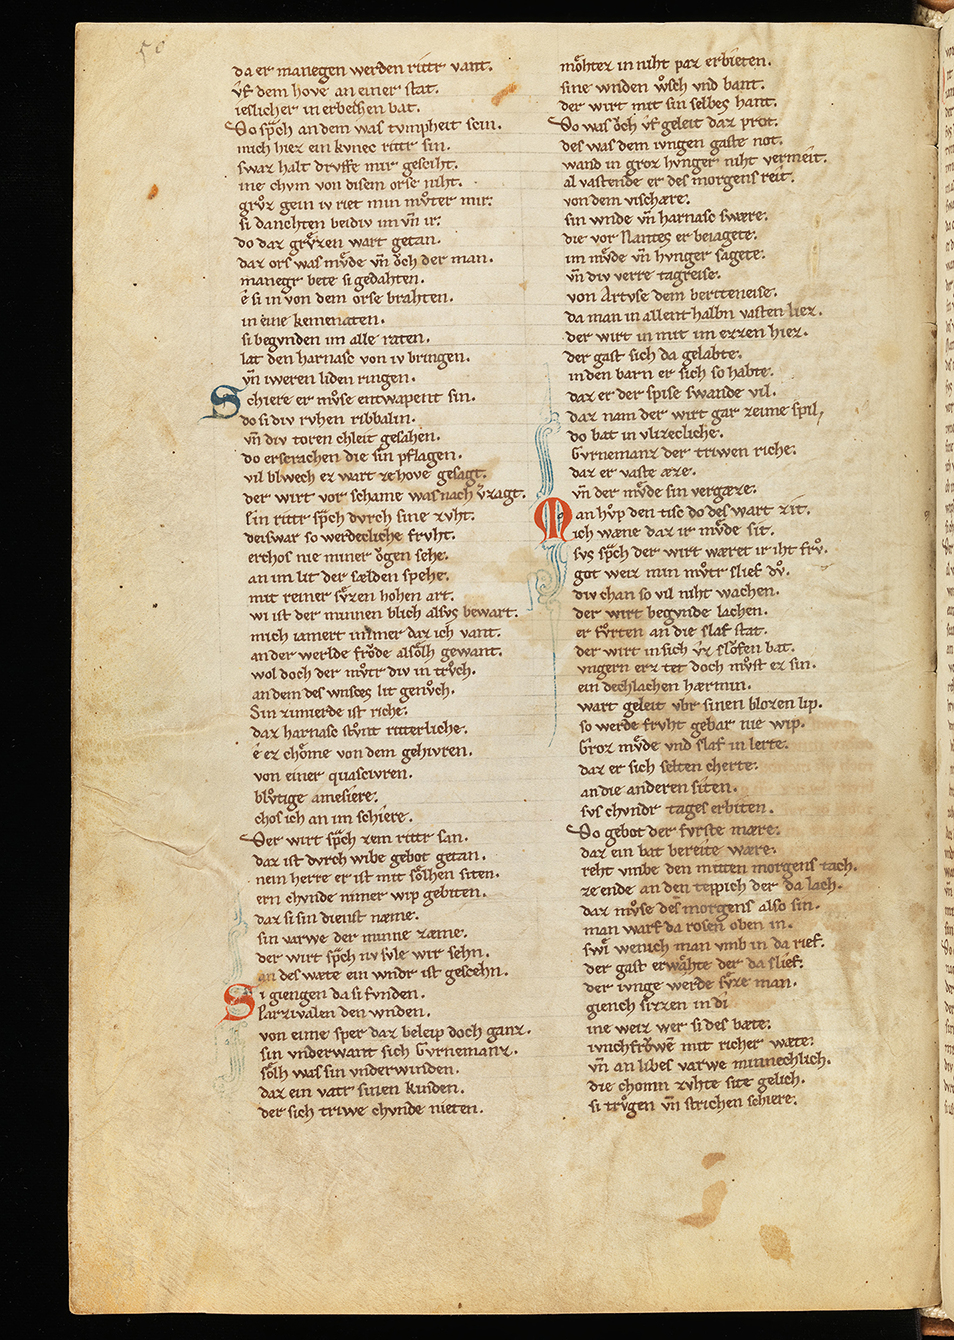 50
da er manegen werden rittr vant.
vf̊ dem hove an einer stat.
ieslicher in erbeizen bat.
Do spͣch an dem was tvmpheit scin.
mich hiez ein kvnec rittr sin.
swaz halt drvffe mir gesciht.
ine chvm von disem orse niht.
grv̊z gein iv riet min mv̊ter mir.
si danchten beidiv im vn̄ ir.
do daz grv̊zen wart getan.
daz ors was mv̊de vn̄ och der man.
manegr bete si gedahten.
ê si in von dem orse brahten.
in eine kemenaten.
si begvnden im alle raten.
lat den harnasc von iv bringen.
vn̄ iweren liden ringen.
Schiere er mv̊se entwapent sin.
do si div rvhen ribbalin.
vn̄ div toren chleit gesahen.
do erscrachen die sin pflagen.
vil blvech ez wart ze hove gesagt.
der wirt vor schame was nach v̊zagt.
Ein rittr spͣch dvrch sine zvht.
deiswar so werdecliche frvht.
erchos nie miner ogen sehe.
an im lit der sælden spehe.
mit reiner sv̊zen hohen art.
wi ist der minnen blich alsvs bewart.
mich iamert immer daz ich vant.
an der werlde frode alsolh gewant.
wol doch der mv̊tr div in trv̊ch.
an dem des wnsces lit genv̊ch.
Sin zimierde ist riche.
daz harnasc stv̊nt ritterliche.
ê ez chome von dem gehivren.
von einer quascivren.
blv̊tige amesiere.
chos ich an im schiere.
Der wirt spͣch zem rittr san.
daz ist dvrch wibe gebot getan.
nein herre er ist mit solhen siten.
ern chvnde nimer wip gebiten.
daz si sin dienst næme.
sin varwe der minne zæme.
der wirt spͣch nv svle wir sehn.
an des wæte ein wndr ist gescehn.
Si giengen da si fvnden.
Parzivalen den wnden.
von eime sper daz beleip doch ganz.
sin vnderwant sich Gvrnemanz.
solh was sin vnderwinden.
daz ein vatr sinen kinden.
der sich triwe chvnde nieten.
mohtez in niht paz erbieten.
sine wnden wsch vnd bant.
der wirt mit sin selbes hant.
Do was och vf geleit daz prot.
des was dem ivngen gaste not.
wand in groz hvnger niht vermeit.
al vastende er des morgens reit.
von dem vischære.
sin wnde vn̄ harnasc swære.
die vor Nantes er beiagete.
im mv̊de vn̄ hvnger sagete.
vn̄ div verre tagreise.
von Artvse dem berteneise.
da man in allenthalbn vasten liez.
der wirt in mit im ezzen hiez.
der gast sich da gelabte.
inden barn er sich so habte.
daz er der spise swande vil.
daz nam der wirt gar zeime spil,
do bat in vlizecliche.
Gvrnemanz der triwen riche.
daz er vaste æze.
vn̄ der mv̊de sin vergæze.
Man hv̊p den tisc do des wart zit.
ich wæne daz ir mv̊de sit.
svs spͣch der wirt wæret ir iht frv̊.
got weiz min mv̊tr slief dv̊.
div chan so vil niht wachen.
der wirt begvnde lachen.
er fv̊rten an die slaf stat.
der wirt in sich v̊z slofen bat.
vngern erz tet doch mv̊st ez sin.
ein dechlachen hærmin.
wart geleit vbr sinen blozen lip.
so werde frvht gebar nie wip.
Groz mv̊de vnd slaf in lerte.
daz er sich selten cherte.
an die anderen siten.
svs chvndr tages erbiten.
Do gebot der fvrste mære.
daz ein bat bereite wære.
reht vmbe den mitten morgens tach.
ze ende an den teppich der da lach.
daz mv̊se des morgens also sin.
man warf da rosen oben in.
swi wenich man vmb in da rief.
der gast erwahte der da slief.
der ivnge werde sv̊ze man.
giench sizzen in di
ine weiz wer si des bæte.
ivnchfrowē mit richer wæte.
vn̄ an libes varwe minnechlich.
die chomn zvhte site gelich.
si trv̊gen vn̄ strichen schiere.